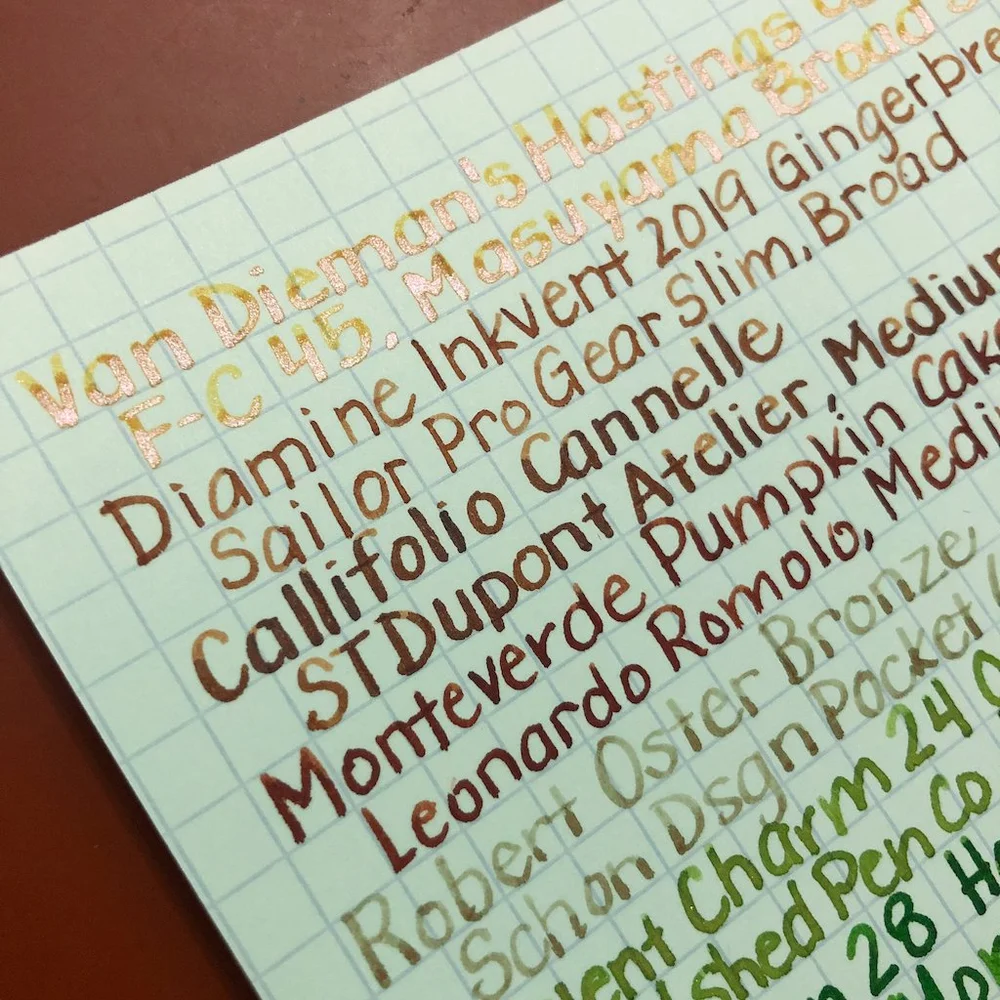 Van Dieman's Hastings
F-C 45, Masuyama Broad
Diamine Inkvent 2019 Gingerbre
Sailor Pro Gear Slim, Broad
Callifolio Cannelle
STDupont Atelier, Medium
Monteverde Pumpkin Cak
Leonardo Romolo, Medi
Robert Oster Bronze,
Schon Dsgn Pocket
ent Charm 24
shed Pen Co
28